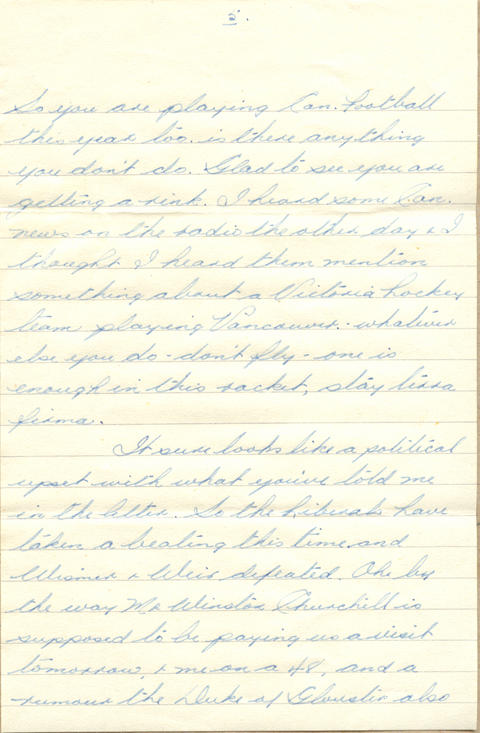 2.
So you are playing Can. Football
this year too. is there anything
you don't do. Glad to see you are
getting a rink. I heard some Can.
news on the radio the other day & I
thought I heard them mention
something about a Victoria hockey
team playing Vancouver. - whatever
else you do - don't fly - one is
enough in this racket, stay terra
firma.
It sure looks like a political
upset with what you've told me
in the letter. So the Liberals have
taken a beating this time and
Wismer & Weir defeated. Oh by
the way Mr Winston Churchill is
supposed to be paying us a visit
tomorrow, & me on a 48, and a
rumour the Duke of Gloustir also